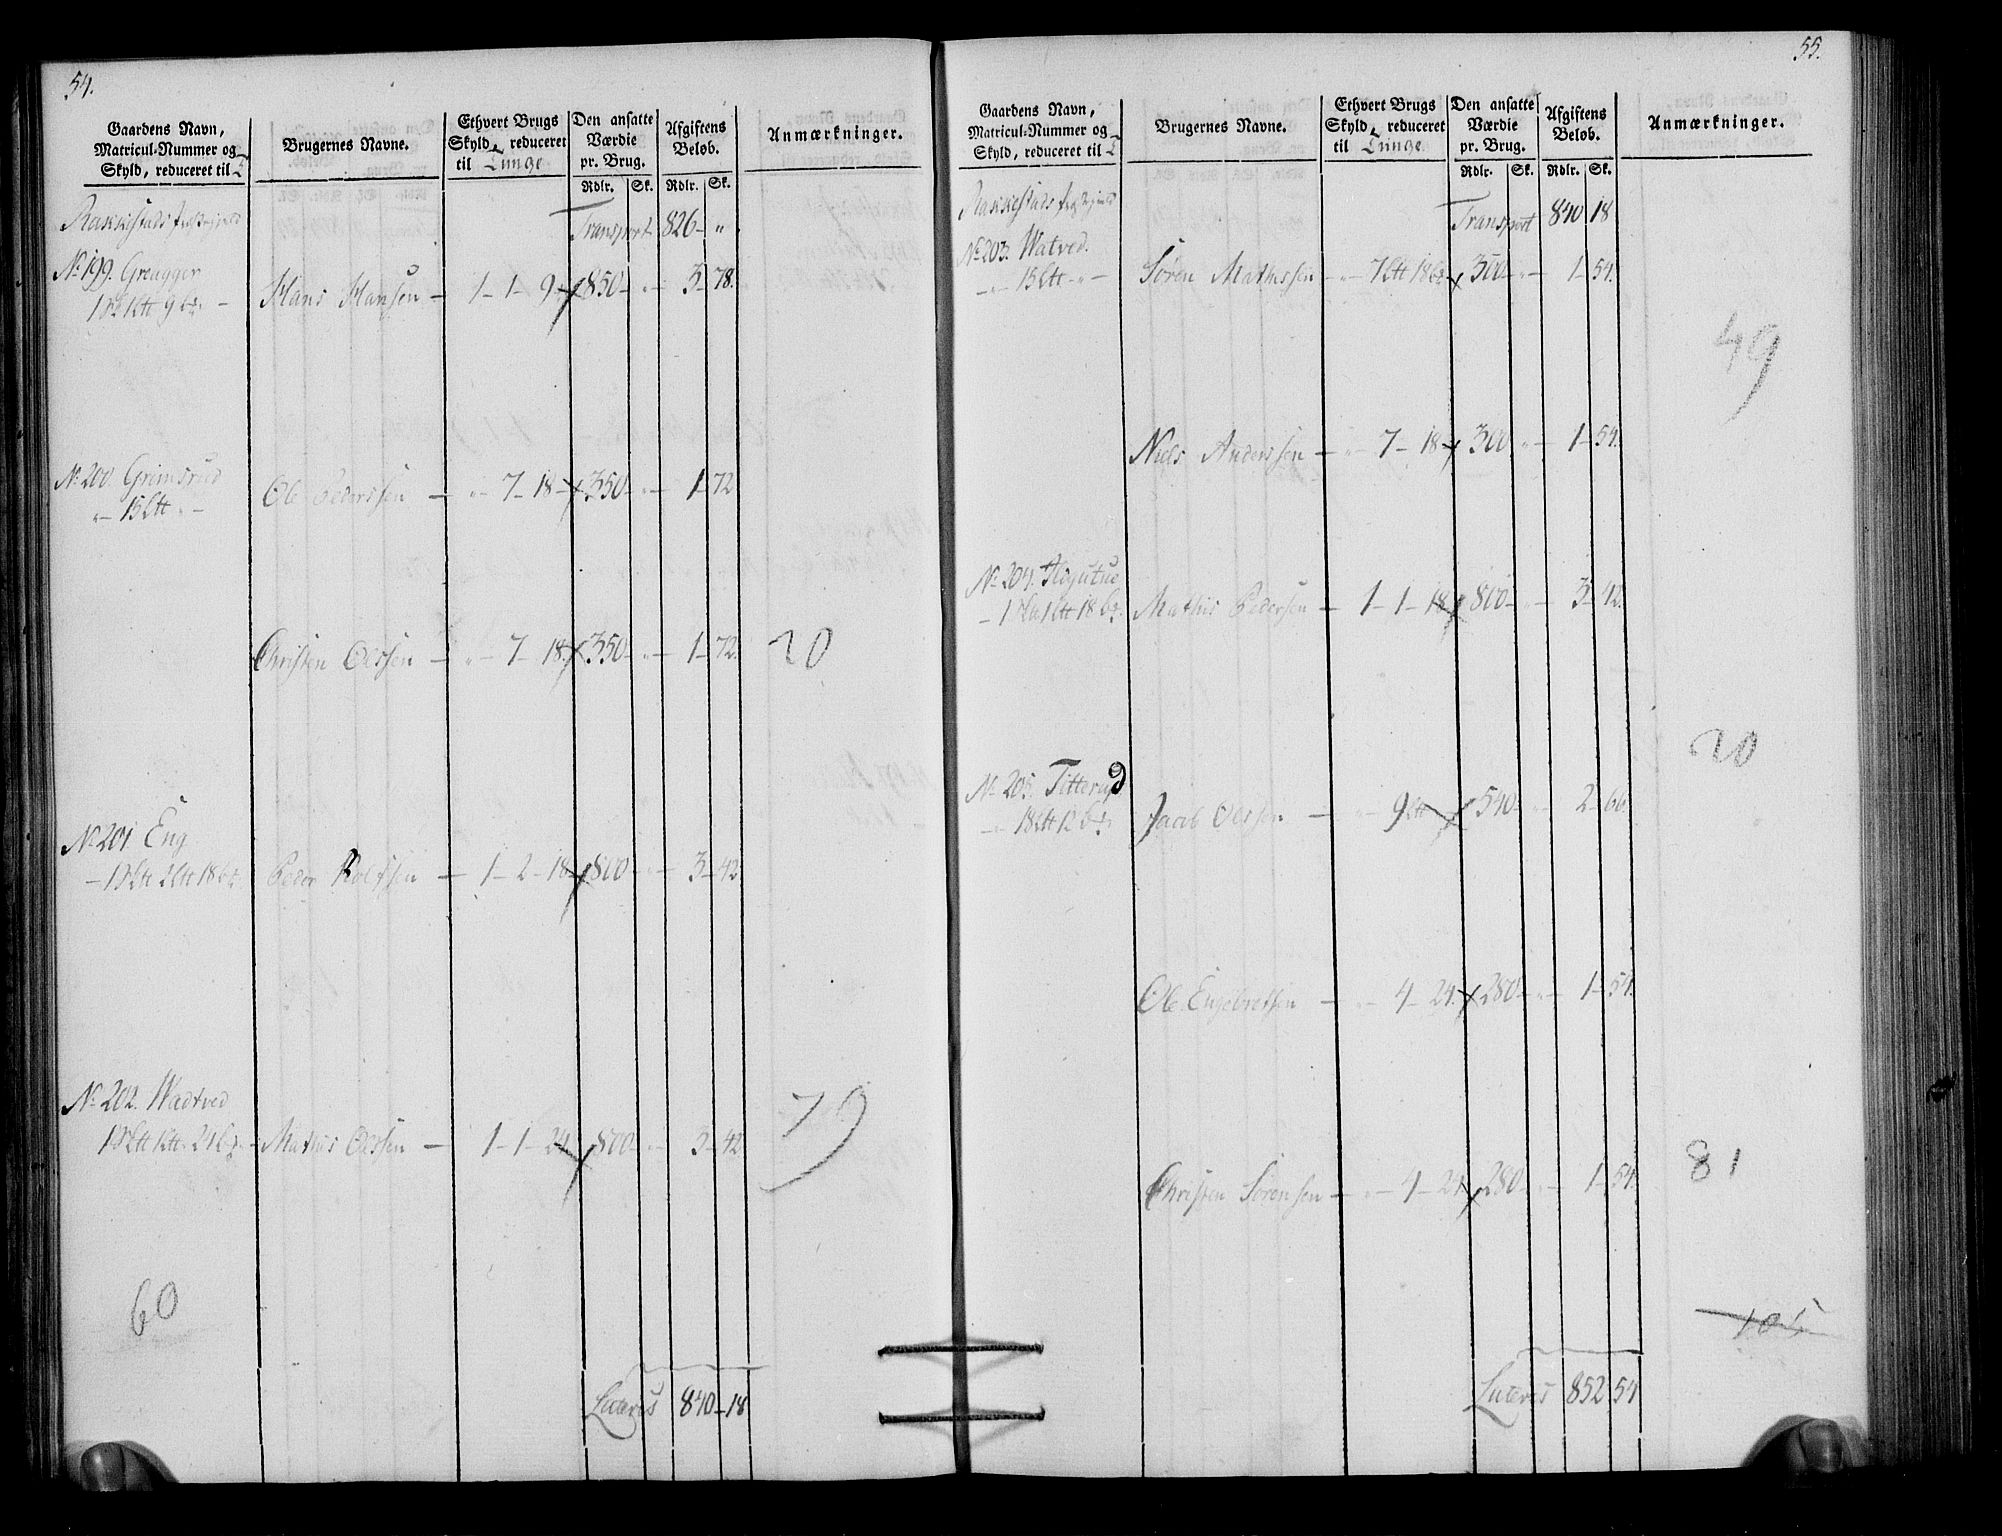 54.
Gaardens Navn,
Matricul-Nummer og
Skyld, reduceret til
Brugernes Navne.
Ethvert Brugs
Skyld, reduceret
til Tunge
Den ansatte
Værdie
pr. Brug.
Rdlr. Sk.
Afgiftens
Beløb.
Rdlr. Sk.
Anmærkninger.
Rakkestads
Transport 826 - "
No 199. Greugger
Hans Hansen - 1 - 1 - 9 - 850 - " - 3 - 78.
No 200. Grimsrud
" - 15 Ltt " -
Ole Pedersen - " - 7 - 18 - 350 - " - 1 - 72
Christen Olssen - " - 7 - 18 350 - " - 1 - 72.
20
No 201. Eng
Peder Rolfsen - 1 - 2 - 18 - 800 - " - 3 - 42
No 202. Wadtved
Mathis Olssen - 1 - 1 - 24 - 800 - " - 3 - 42
79
60
Lateris 840 - 18
55.
Gaardens Navn,
Matricul-Nummer og
Skyld, reduceret til
Brugernes Navne.
Ethvert Brugs
Skyld, reduceret
til Tunge
Den ansatte
Værdie
pr. Brug.
Rdlr. Sk.
Afgiftens
Beløb.
Rdlr. Sk.
Anmærkninger.
Rakkestads
Transport 840 18
No 203. Watved.
- " - 15 Ltt - " -
Søren Mathissen - " - 7 Ltt 18 - 300 - " - 1 - 54.
49
Niels Anderssen - " - 7 - 18 - 300 " - 1 - 54.
No 204.
Mathis Pedersen - 1 - 1 - 18 800 - " - 3 - 42.
20
No 205. Titterud
Jacob Olssen - " - 9 Ltt - 540 - " - 2 - 66
Ole Engebretsen - " - 4 - 24. 280 - " - 1 - 54.
Christen Sørensen - " - 4 - 24 280 - " - 1 - 54.
81
105
Lateris 852 54